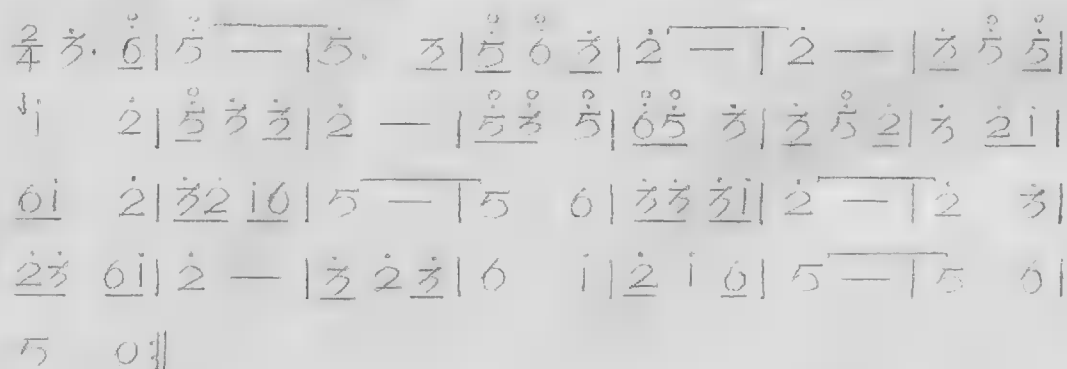 2/4 3̇. 6̇|5̇ —|5̇. 3|5̇ 6̇ 3̇|2̇ —|2̇ —|3̇ 5̇ 5̇|
i 2̇|5̇ 3̇ 3̇|2̇ —|5̇3̇ 5̇|6̇5̇ 3̇|3̇ 5̇ 2̇|3̇ 2̇i|
6i 2̇|3̇2̇ i6|5 —|5 6|3̇3̇ 3̇i|2̇ —|2̇ 3̇|
2̇3̇ 6i|2̇ —|3̇ 2̇ 3̇|6 i|2̇ i 6|5 —|5 6|
5 0:‖